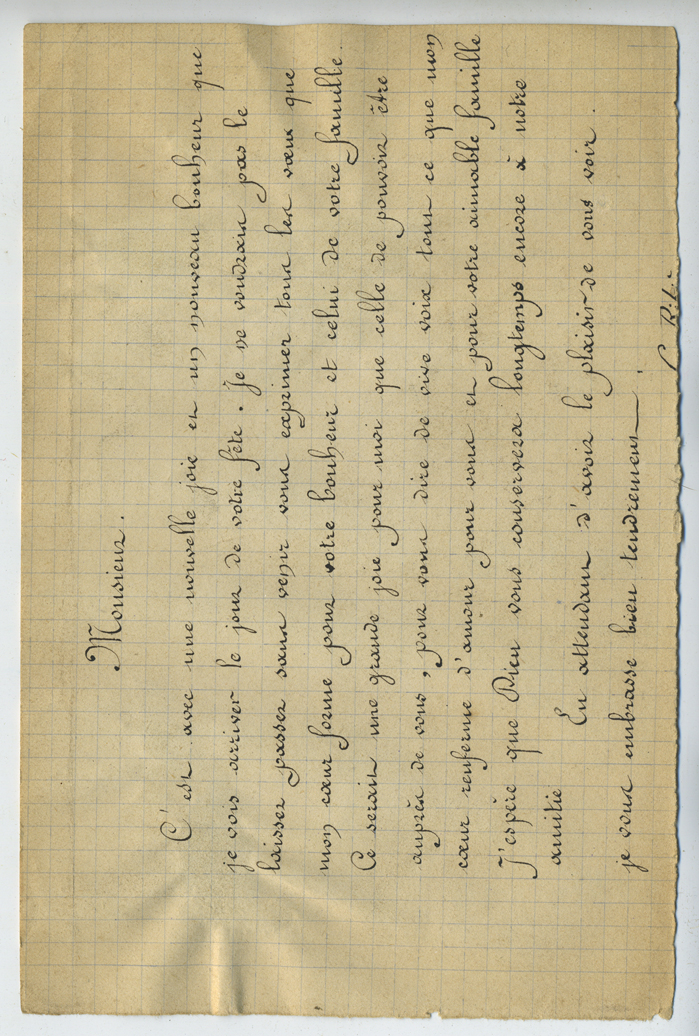 Monsieur.
C'est avec une nouvelle joie et un nouveau bonheur que
je vois arriver le jour de votre fête. Je ne voudrais pas le
laisser passer sans venir vous exprimer tous les vœux que
mon cœur forme pour votre bonheur et celui de votre famille.
Ce serait une grande joie pour moi que celle de pouvoir être
auprès de vous, pour vous dire de vive voix tous ce que mon
cœur renferme d'amour pour vous et pour votre aimable famille
J'espère que Dieu vous conservera longtemps encore à notre
amitie
En attendant d'avoir le plaisir de vous voir.
je vous embrasse bien tendrement.
R.L.